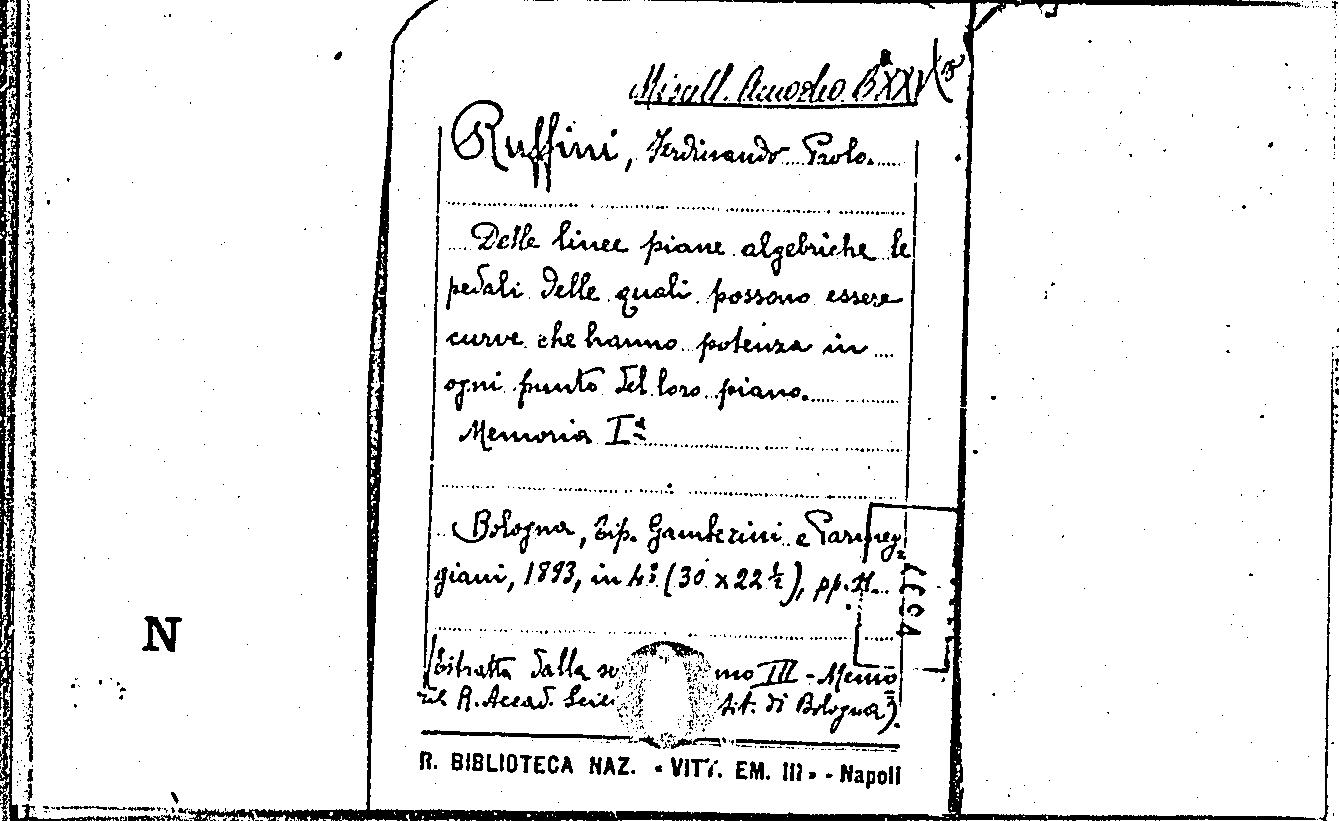 Miscell. Amodeo B XXV (13
Ruffini, Ferdinando Paolo.
Delle linee piane algebriche le
pedali delle quali possono essere
curve che hanno potenza in
ogni punto del loro piano.
Memoria Iª
Bologna, Tip. Gamberini e Parmeg=
giani, 1893, in 4º (30 x 22 ½), pp.
(Estratta dalla III - Memo
R. Accad. di Bologna).
R. BIBLIOTECA NAZ. « VITT. EM. III » - Napoli
N